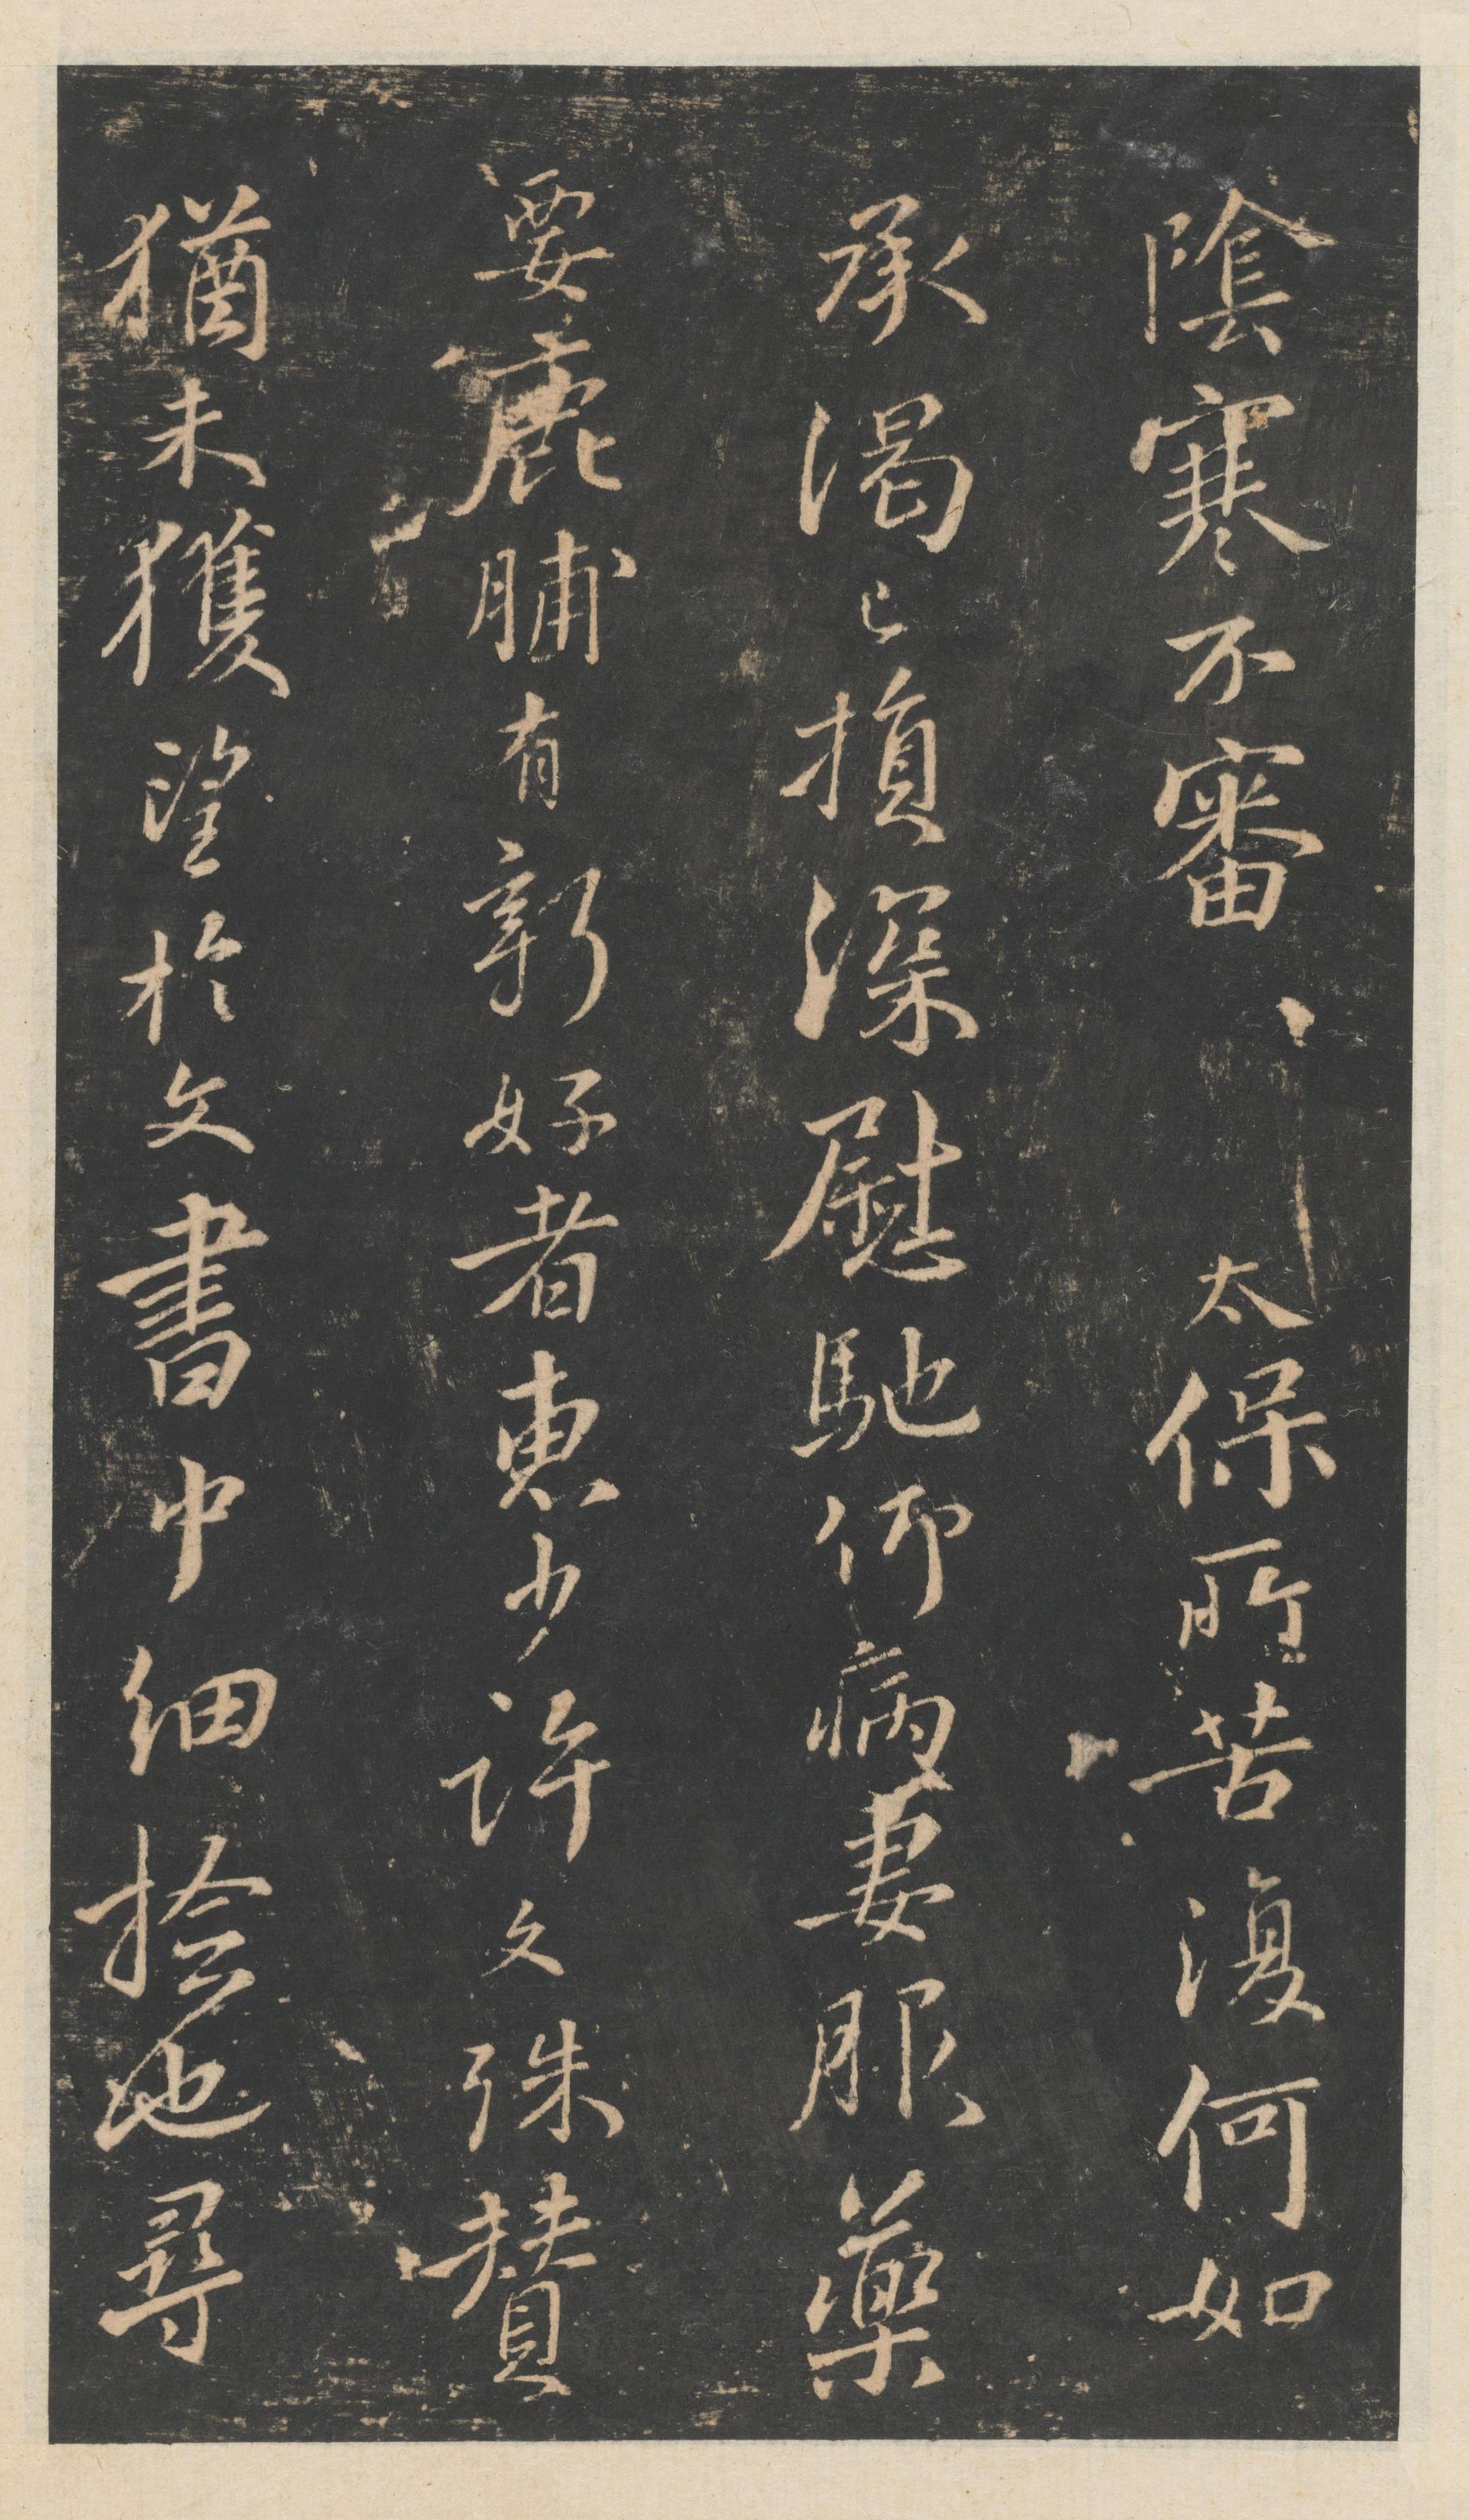 陰寒不審太保所苦復何如
承渴已損深慰馳仰病妻服藥
要鹿脯有新好者惠少許文殊賛
猶未獲望於文書中細捡也尋